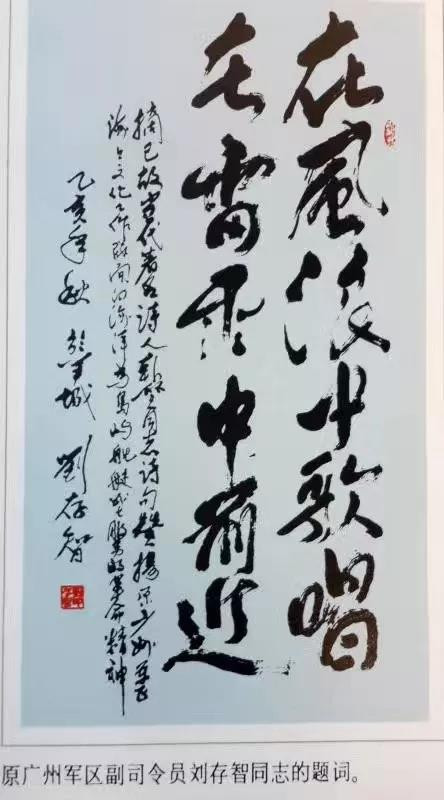 在風浪中歌唱
在雷雨中前進
摘已故当代著名詩人同志詩句赞揚原广州军区
海上文化工作队面向海洋为岛屿舰艇战士服务的革命精神
乙亥年秋 於羊城 劉存智
原广州军区副司令员刘存智同志的题词。